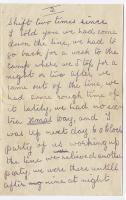 3
shift two times since
I told you we had come
down the line, we had to
go back for a week to the
camp where we slept for a
night or two after we
came out of the line, we
had some rough time of
it lately, we had no ex
tra day, and I
was up next day to a
party of us working up
the line we relieved another
party, we were there untill
after nine at night